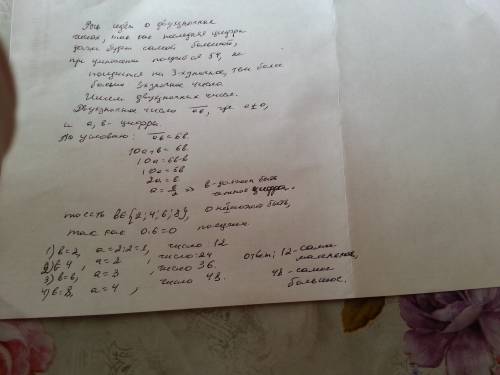 Речь идёт о двузначных
числах, так как последняя цифра
даже будет самой большой,
при умножении получится 54, не
получится на 3-хзначное, тем более
больше 3значное число.
Ищем двузначные числа.
Двузначное число ab, где a≠0,
и a, b - цифры.
По условию: ab=6b.
10a+b=6b
10a=6b-b
10a=5b
2a=b
a=b/2 => b-должен быть
чётное цифра.
то есть b∈{2;4;6;8}, 0 не может быть,
так как 0·6=0
получим
1) b=2, a=2:2=1, число 12
2) b=4, a=2, число 24
3) b=6, a=3, число 36.
4) b=8, a=4, число 48.
ответ: 12-самое
маленькое,
48-самое
большое.